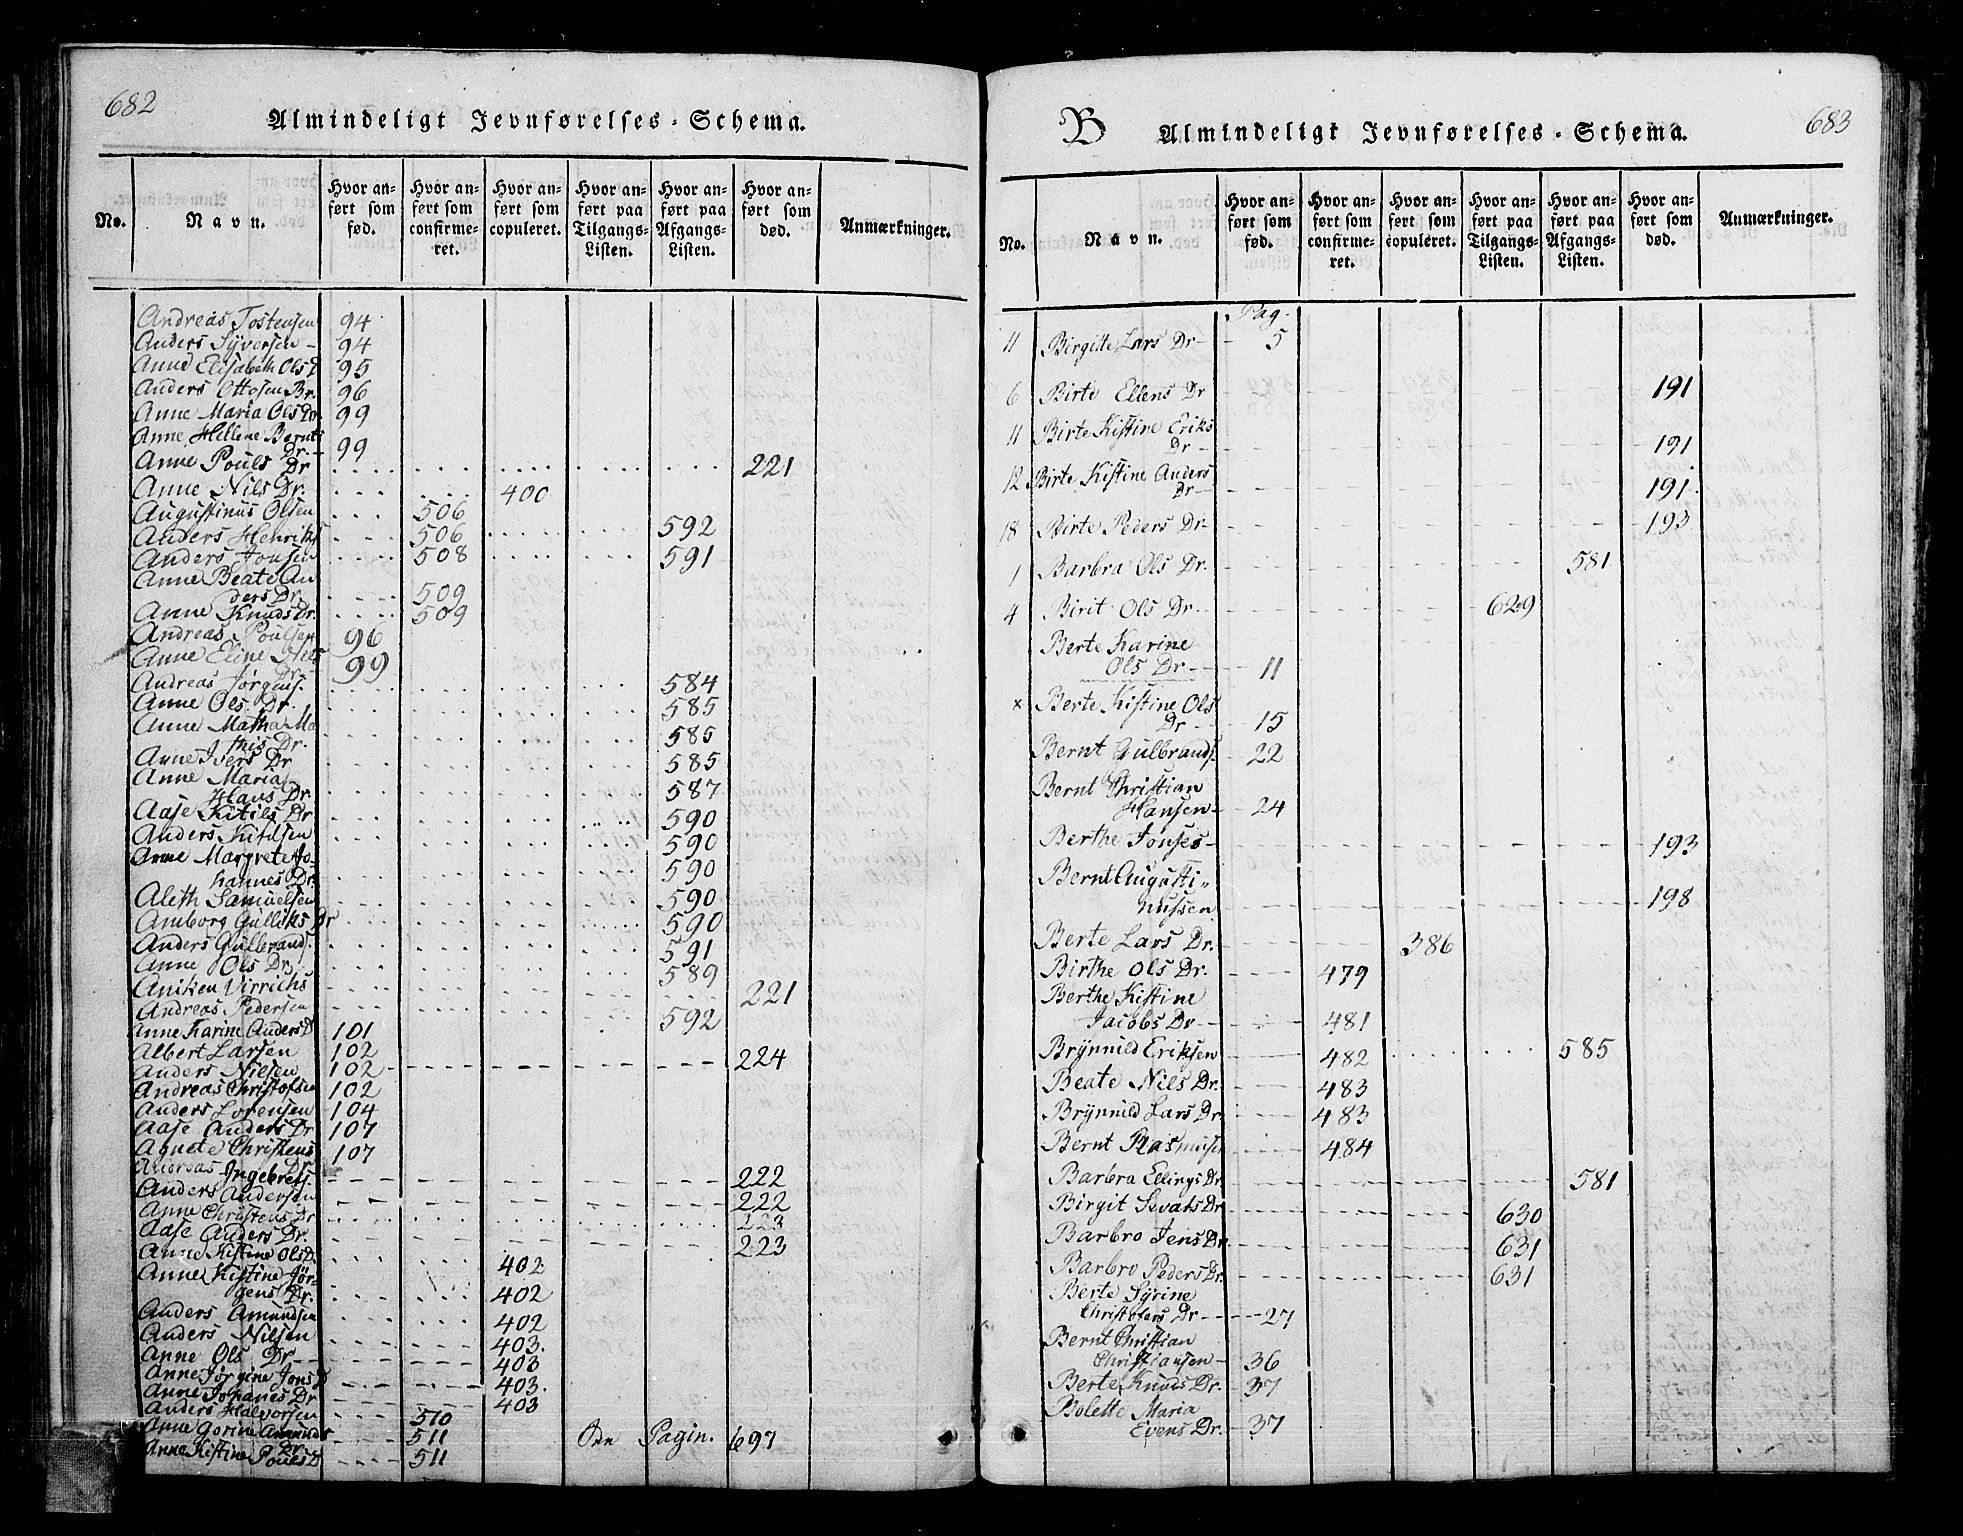 682
Almindeligt Jevnførelses-Schema.
No. Navn. Hvor anført som fød. Hvor anført som confirmeret. Hvor anført som copuleret. Hvor anført paa Tilgangs-Listen. Hvor anført paa Afgangs-Listen. Hvor anført som død. Anmærkninger.
Andreas Tostensen 94
Anders Syversen - 94
Anne Elisabeth Ols D 95
Anders Ottosen Br. 96
Anne Maria Ols Dr. 99
Anne Hellene Bernts
Dr. - 99
Anne Pouls Dr 221
Anne Nils Dr. 400
Augustinus Olsen 506
Anders Henriks 506 592
Anders Jonsen 508 591
Anne Beate An
ders Dr. 509
Anne Knuds Dr. 509
Andreas Poulsen 96
Anne Eline Nils
Dr. 99
Andreas Jørgens. 584
Anne Ols Dr. 585
Anne Matha Ma
this Dr. 585
Anne Ivers Dr 585
Anne Maria
Hans Dr. 587
Aase Kitils Dr 590
Anders Kitilsen 590
Anne Margrete Jo-
hannes Dr. 590
Aleth Samuelsen 590
Amborg Gulliks Dr 590
Anders Gulbrands. 591
Anne Ols Dr. 589
Aniken Virrichs 221
Andreas Pedersen 592
Anne Karine Anders D 101
Albert Larsen 102
Anders Nilsen 102 224
Andreas Christofsen 102
Anders Lorensen 104
Aase Anders Dr 107
Agnete Christens
Dr 107
Andreas Ingebrets. 222
Anders Andersen 222
Anne Christens Dr 223
Aase Anders Dr. 223
Anne Kistine Ols D. 402
Anne Kistine Jør-
gens Dr. 402
Anders Amundsen 402
Anders Nilsen 403.
Anne Ols Dr 403
Anne Jørgine Jons D 403.
Anne Johanes Dr 403
Anders Halvorsen 510
Anne Gorine Amunds
Dr. 511
Anne Kistine Pouls D 511
Pagin. 697
683
B Almindeligt Jevnførelses-Schema.
No. Navn. Hvor anført som fød. Hvor anført som confirmeret. Hvor anført som copuleret. Hvor anført paa Tilgangs-Listen. Hvor anført paa Afgangs-Listen. Hvor anført som død. Anmærkninger.
Pag.
11 Birgitte Lars Dr - 5
6 Birte Ellens Dr 191
11 Birte Kistine Eriks
Dr - 191
12 Birte Kistine Anders
Dr - 191.
18 Birte Peders Dr. 193
1 Barbra Ols Dr. 581
4 Birit Ols Dr - 629
Berte Karine
Ols Dr - 11
× Berte Kistine Ols
Dr - 15
Bernt Gulbrands. 22
Bernt Christian
Hansen - 24
Berthe Jonses - 193
Bernt Augusti„
nussen 198
Berte Lars Dr. 386
Birthe Ols Dr. 479
Berthe Kistine
Jacobs Dr - 481
Brynnild Eriksen 482 585
Beate Nils Dr. 483
Brynnild Lars Dr. 483
Bernt Rasmussen 484
Barbra Ellings Dr 581
Birgit Sivats Dr 630
Barbro Jens Dr. 631
Barbro Peders Dr. 631
Berte Syrine
Christofers Dr - 27
Bernt Christian
Christiansen - 36
Berte Knuds Dr. 37
Bolette Maria
Evens Dr. 37